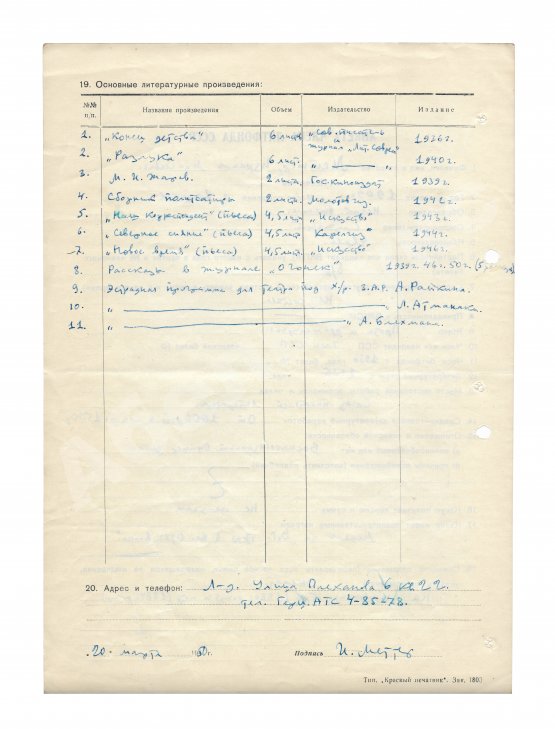 19. Основные литературные произведения:
№№ п.п. Название произведения Объем Издательство Издание
1. „Конец детства" 6 лист. „Сов. писатель и журнал „Лит. Совр." 1936 г.
2. „Разлука" 6 лист. „ — „ 1940 г.
3. М. И. Жаров. 2 лист. Госкиноиздат 1939 г.
4. Сборник политсатиры 2 лист. Молотовгиз. 1942 г.
5. „Наш Корреспондент" (пьеса) 4,5 лист. „Искусство" 1943 г.
6. „Северное сияние" (пьеса) 4,5 лист. Карелгиз 1944 г.
7. „Новое время" (пьеса) 4,5 лист. „Искусство" 1946 г.
8. Рассказы в журнале „Огонек" 1939 г. 46 г. 50 г.
9. Эстрадная программа для театра под х/р. З.А.Р. А. Райкина.
10. „ — „ Л. Атманаки.
11. „ — „ А. Блехмана.
20. Адрес и телефон: Л-д. Улица Плеханова 6 кв. 22.
тел. Герц. АТС 4-35-73.
20. марта 1950 г. Подпись И. Меттер
Тип. „Красный печатник". Зак. 1800